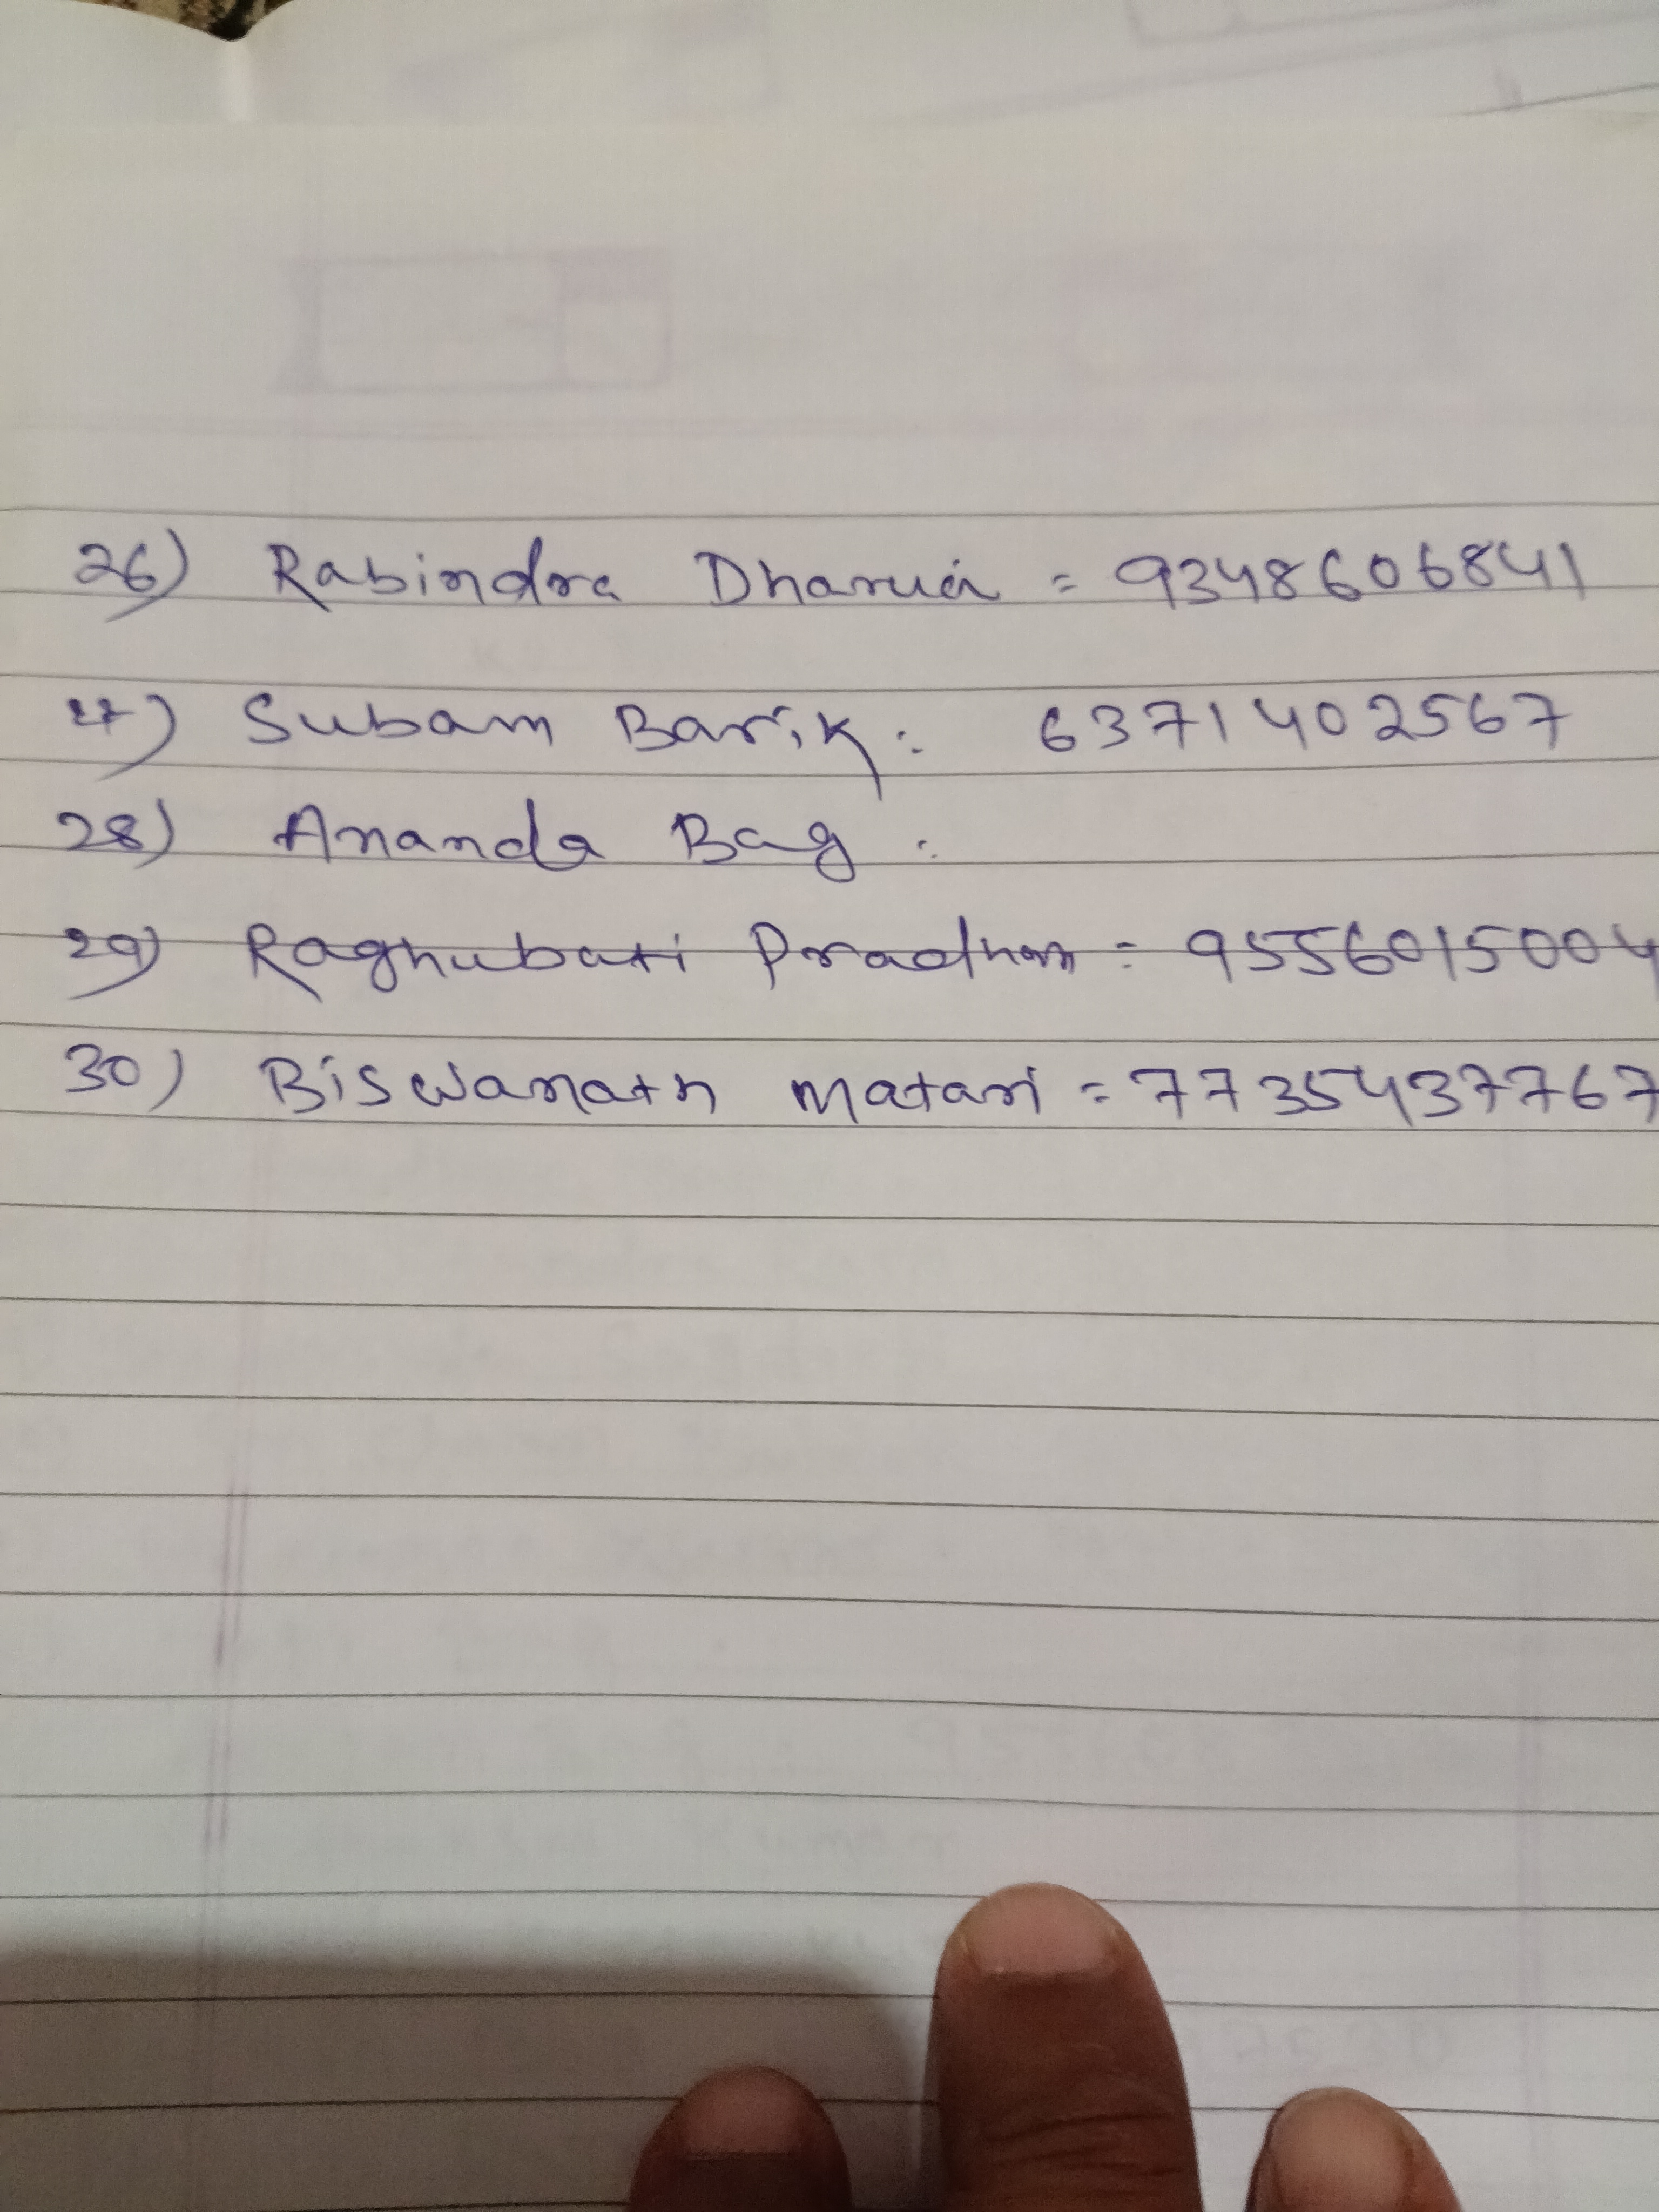 26) Rabindra Dharua = 9348606841
27) Subam Barik: 6371402567
28) Ananda Bag :
29) Raghubati Pradhan = 9556015004
30) Biswanath Matari = 7735437767